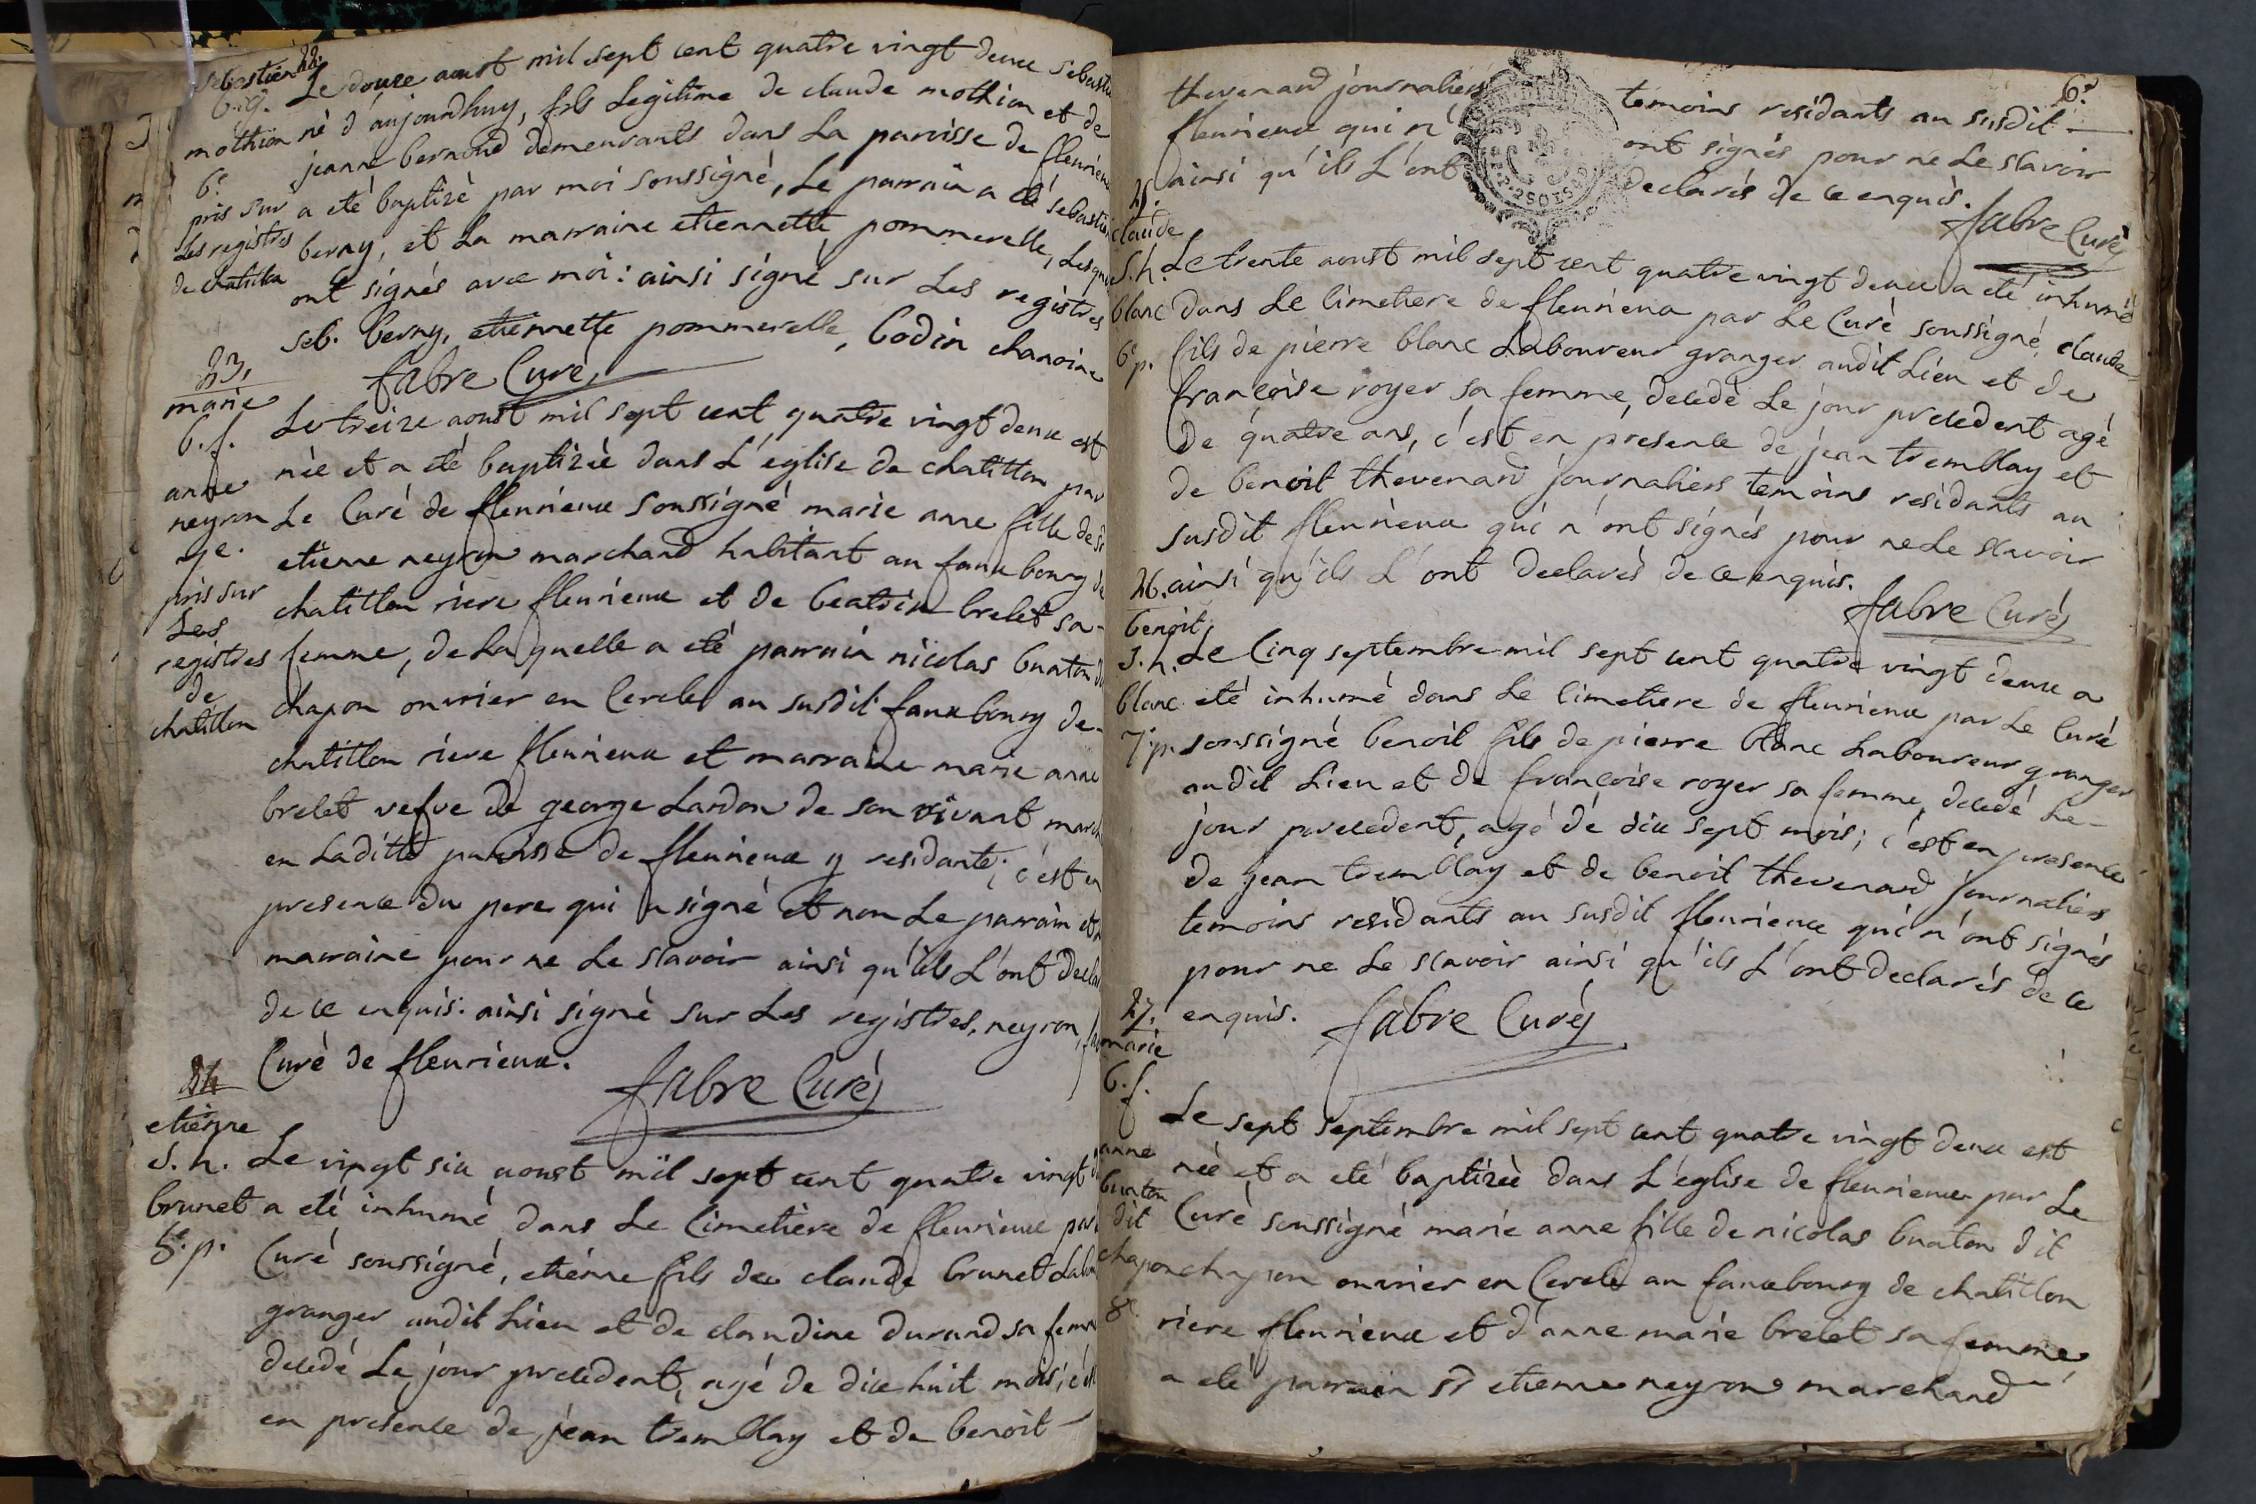 22.
sebastien
b. g.
mothion
6e.
pris sur
les registres
de chatillon
Le douze aoust mil sept cent quatre vingt deux sebastien
né d'aujourdhuy, fils legitime de claude mothion et de
jeanne bernoud demeurants dans la paroisse de fleurieux
a eté baptizé par moi soussigné, le parrain a eté sebastien
berny, et la marraine etiennette pommerelle, lesquels
ont signés avec moi: ainsi signé sur les registres
seb. berny, etiennette pommerelle, bodin chanoine
fabre Curé,
23,
marie
b. f.
anne
neyron
7e.
pris sur
les
registres
de
chatillon
Le treize aoust mil sept cent quatre vingt deux est
née et a eté baptizée dans l'église de chatillon par
le Curé de fleurieux soussigné marie anne fille de sr
etienne neyron marchand habitant au fauxbourg de
chatillon riere fleurieux et de beatrix brelet sa
femme, de laquelle a eté parrain nicolas buaton dit
chapon ouvrier en Cercles au susdit fauxbourg de
chatillon riere fleurieux et marraine marie anne
brelet vefve de george Lardon de son vivant march
en laditte paroisse de fleurieux y residante; c'est en
presence du pere qui a signé et non le parrain et
marraine pour ne le sçavoir ainsi qu'ils l'ont decla
de ce enquis: ainsi signé sur les registres, neyron, fa
Curé de fleurieux.
fabre Curé
24
etienne
s. h.
brunet
5e. p.
Le vingt six aoust mil sept cent quatre vingt d
a eté inhumé dans le Cimetiere de fleurieux par
Curé soussigné, etienne fils de claude brunet Labou
granger audit lieu et de claudine durand sa femme
decedé le jour precedent, agé de dix huit mois; c'est
en presence de jean tremblay et de benoit
6e
thevenard journaliers temoins residants au susdit
fleurieux qui n'ont signés pour ne le sçavoir
ainsi qu'ils l'ont declarés de ce enquis.
fabre Curé
25.
claude
s. h.
blanc
6e p.
Le trente aoust mil sept cent quatre vingt deux a eté inhumé
dans le Cimetiere de fleurieux par le Curé soussigné, claude
fils de pierre blanc Laboureur granger audit lieu et de
françoise royer sa femme, decedé le jour precedent agé
de quatre ans, c'est en presence de jean tremblay et
de benoit thevenard journaliers temoins residants au
susdit fleurieux qui n'ont signés pour ne le sçavoir
ainsi qu'ils l'ont declarés de ce enquis.
fabre Curé
26.
benoit
s. h.
blanc
7e p.
Le Cinq septembre mil sept cent quatre vingt deux a
eté inhumé dans le Cimetiere de fleurieux par le Curé
soussigné benoit fils de pierre blanc Laboureur granger
audit lieu et de françoise royer sa femme, decedé le
jour precedent, agé de dix sept mois; c'est en presence
de jean tremblay et de benoit thevenard journaliers
temoins residants au susdit fleurieux qui n'ont signés
pour ne le sçavoir ainsi qu'ils l'ont declarés de ce
enquis. fabre Curé
27.
marie
b. f.
anne
buaton
dit
chapon
8e.
Le sept septembre mil sept cent quatre vingt deux est
née et a eté baptizée dans l'église de fleurieux par le
Curé soussigné marie anne fille de nicolas buaton dit
chapon ouvrier en Cercles au fauxbourg de chatillon
riere fleurieux et d'anne marie brelet sa femme,
a eté parrain sr etienne neyron marchand